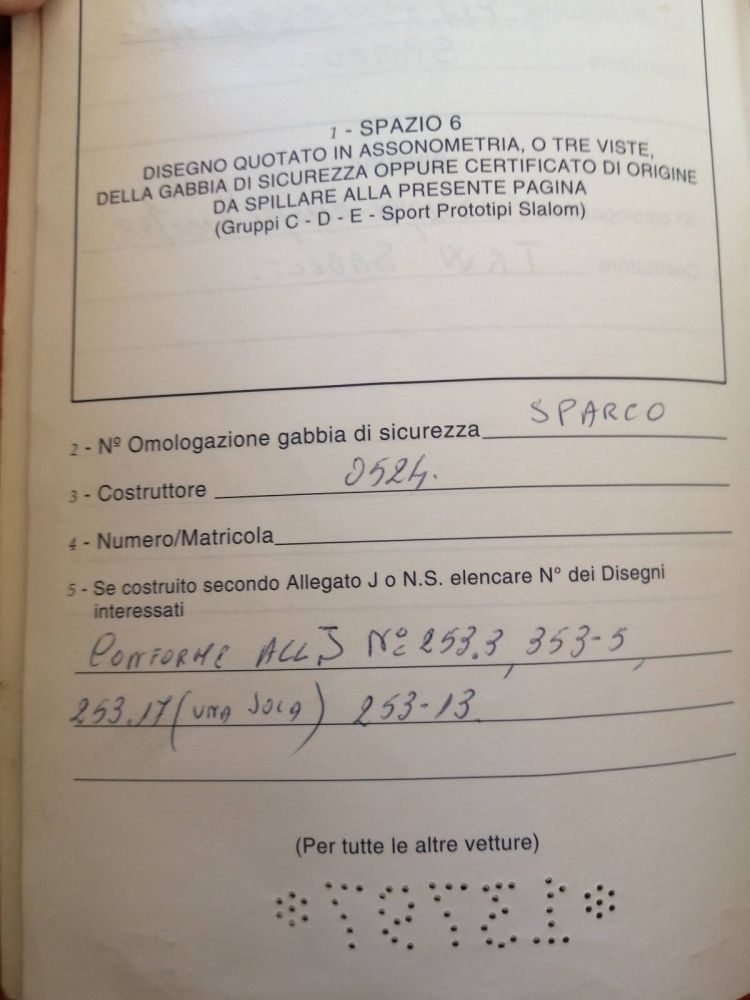 1 - SPAZIO 6
DISEGNO QUOTATO IN ASSONOMETRIA, O TRE VISTE,
DELLA GABBIA DI SICUREZZA OPPURE CERTIFICATO DI ORIGINE
DA SPILLARE ALLA PRESENTE PAGINA
(Gruppi C - D - E - Sport Prototipi Slalom)
2 - Nº Omologazione gabbia di sicurezza SPARCO
3 - Costruttore 0524.
4 - Numero/Matricola
5 - Se costruito secondo Allegato J o N.S. elencare N° dei Disegni
interessati
CONFORME ALL J N° 253.3, 353-5,
253.17 (UNA SOLA) 253-13
(Per tutte le altre vetture)